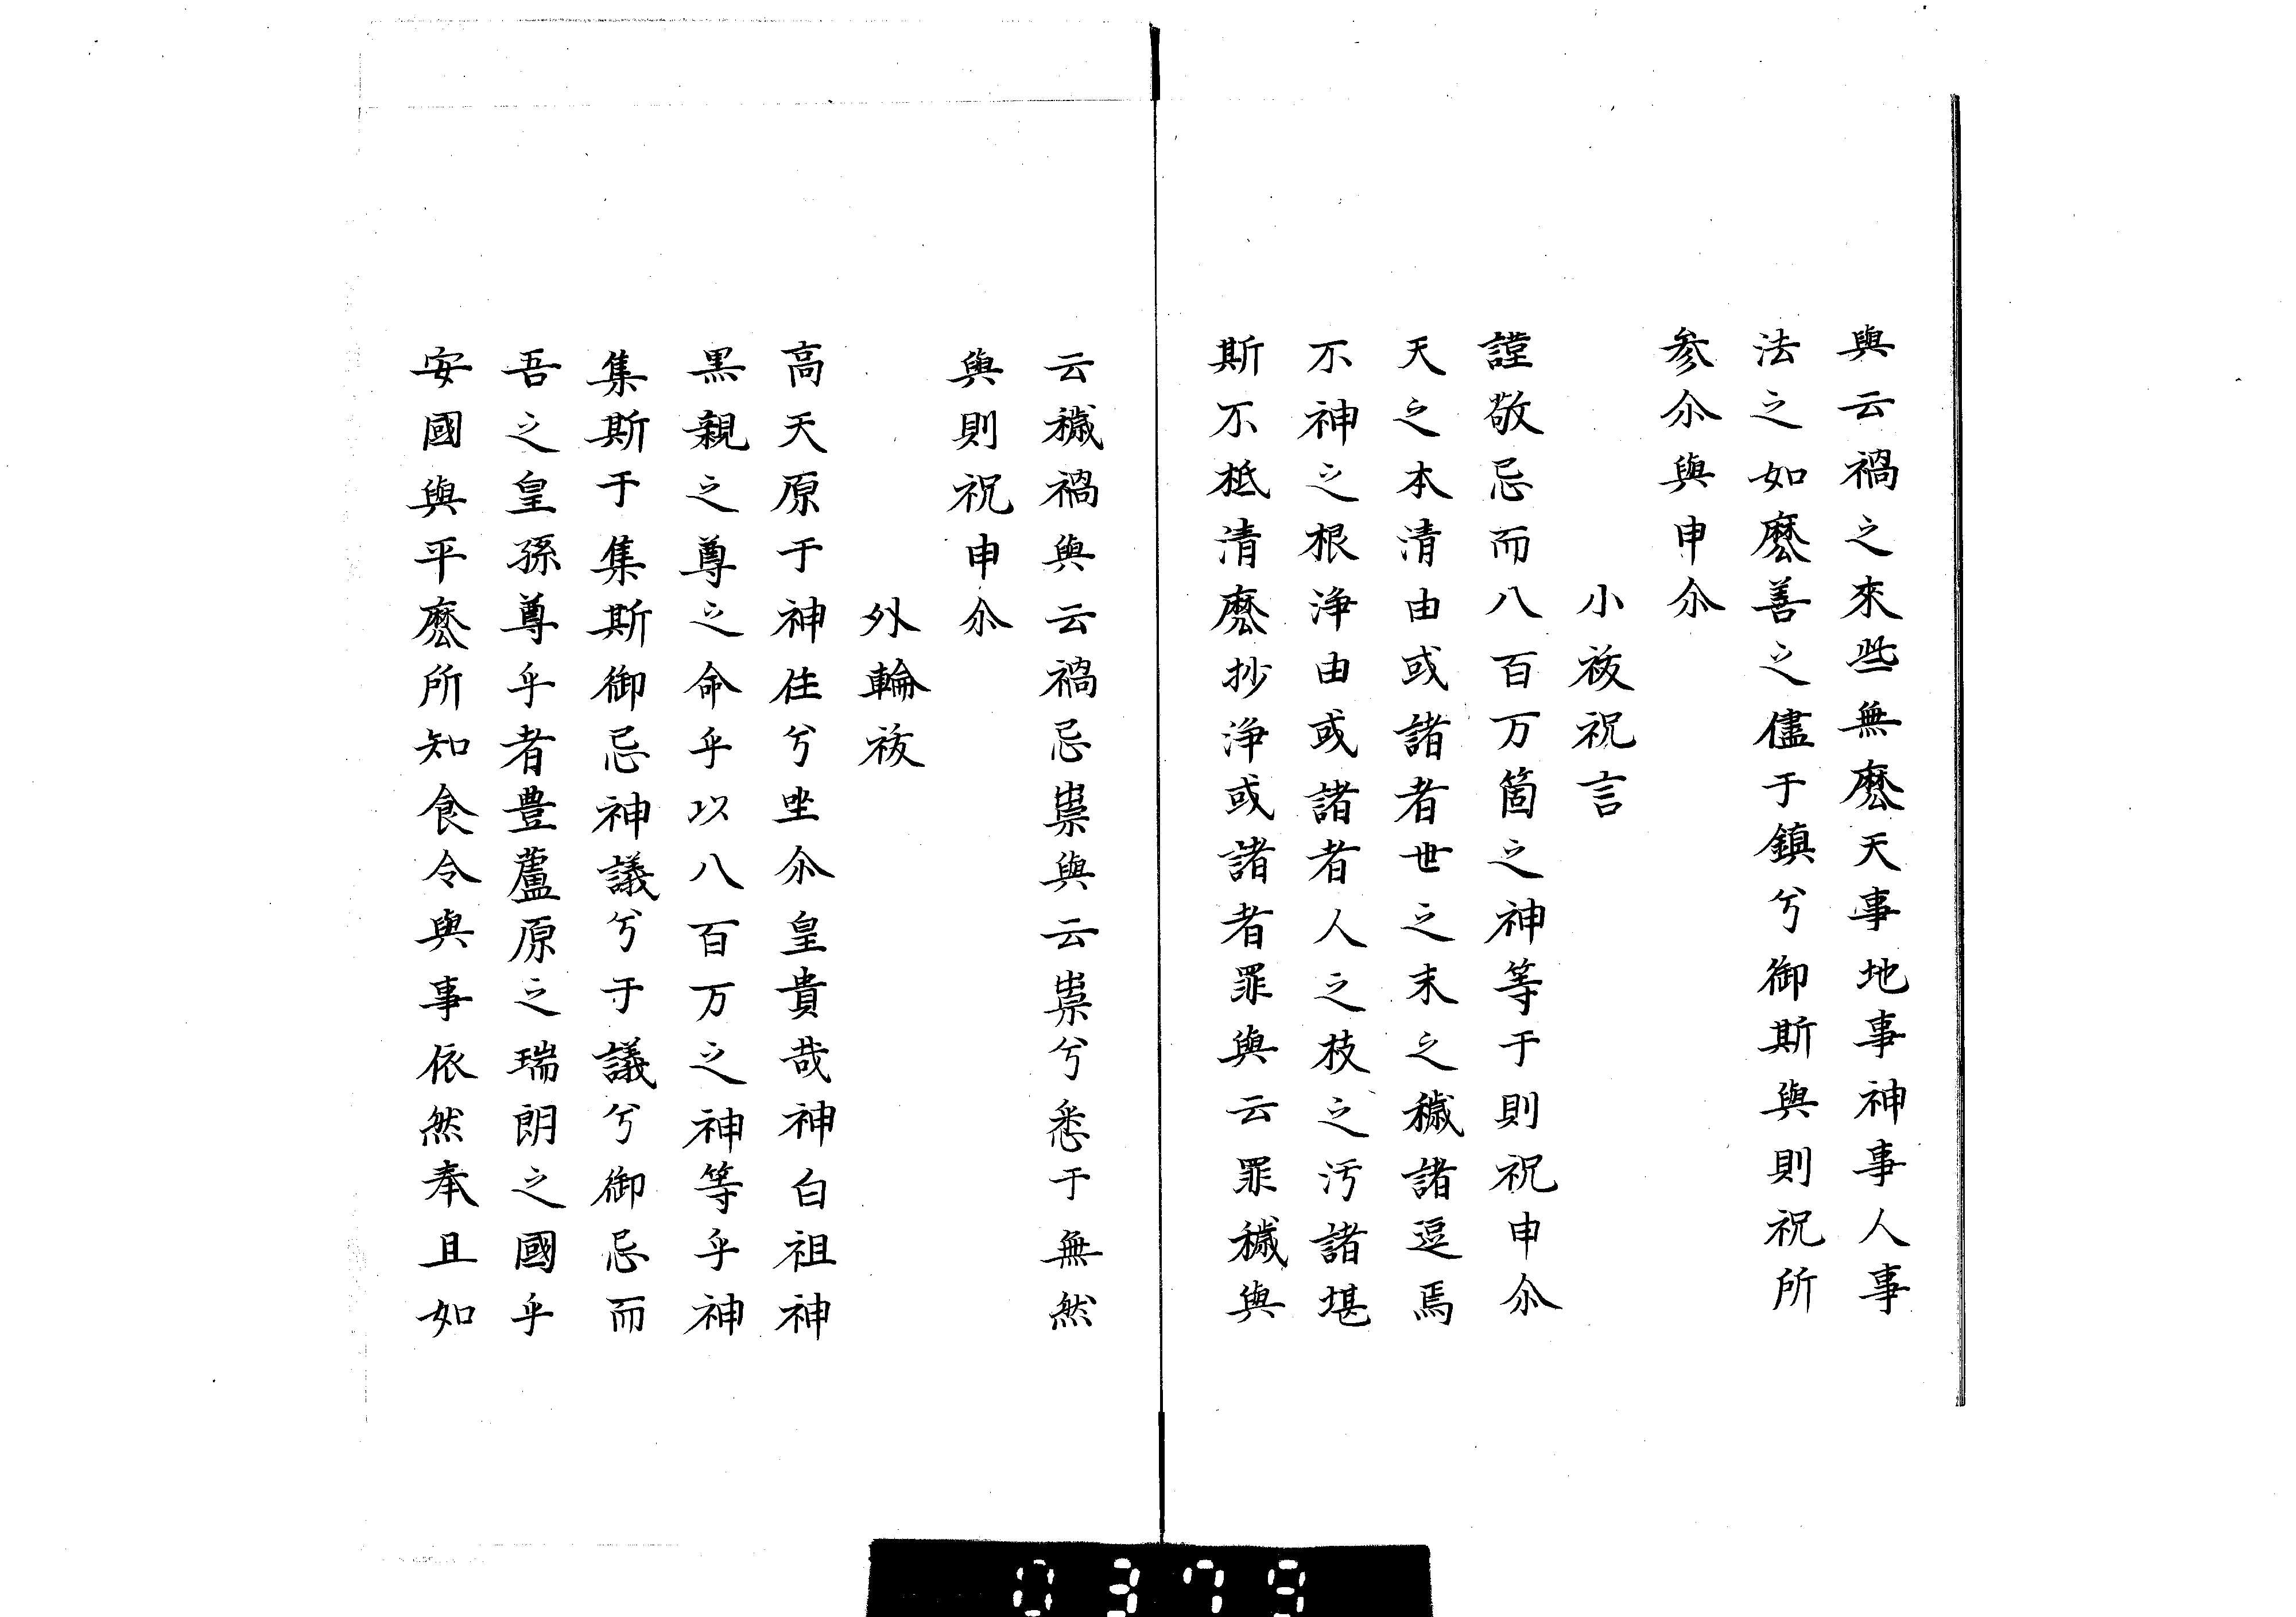 與云禍之來些無麽天事地事神事人事
法之如麽善之儘于鎮兮御斯與則祝所
参尒與申尒
小祓祝言
謹敬忌而八百万箇之神等于則祝申尒
天之本清由或諸者世之末之穢諸逗焉
不神之根浄由或諸者人之枝之汚諸堪
斯不柢清麽抄浄或諸者罪與云罪穢與
云穢禍與云禍忌祟與云祟兮悉于無然
與則祝申尒
外輪祓
高天原于神住兮坐尒皇貴哉神白祖神
黒親之尊之命乎以八百万之神等乎神
集斯于集斯御忌神議兮于議兮御忌而
吾之皇孫尊乎者豊蘆原之瑞朗之國乎
安國與平麽所知食令與事依然奉且如
0379